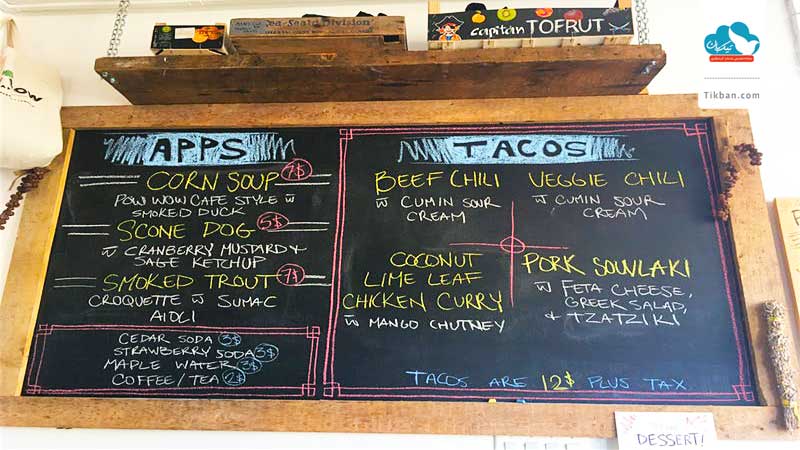 Sea-Seald Division
capitan TOFRUT
Tikban.com
APPS
CORN SOUP 7$
POW WOW CAFE STYLE w
SMOKED DUCK
SCONE DOG 5$
w CRANBERRY MUSTARD +
SAGE KETCHUP
SMOKED TROUT 7$
CROQUETTE w SUMAC
AIOLI
CEDAR SODA 3$
STRAWBERRY SODA 3$
MAPLE WATER 3$
COFFEE/TEA 2$
TACOS
BEEF CHILI
w CUMIN SOUR
CREAM
VEGGIE CHILI
w CUMIN SOUR
CREAM
COCONUT
LIME LEAF
CHICKEN CURRY
w MANGO CHUTNEY
PORK SOUVLAKI
w FETA CHEESE,
GREEK SALAD,
+ TZATZIKI
TACOS ARE 12$ PLUS TAX
DESSERT!